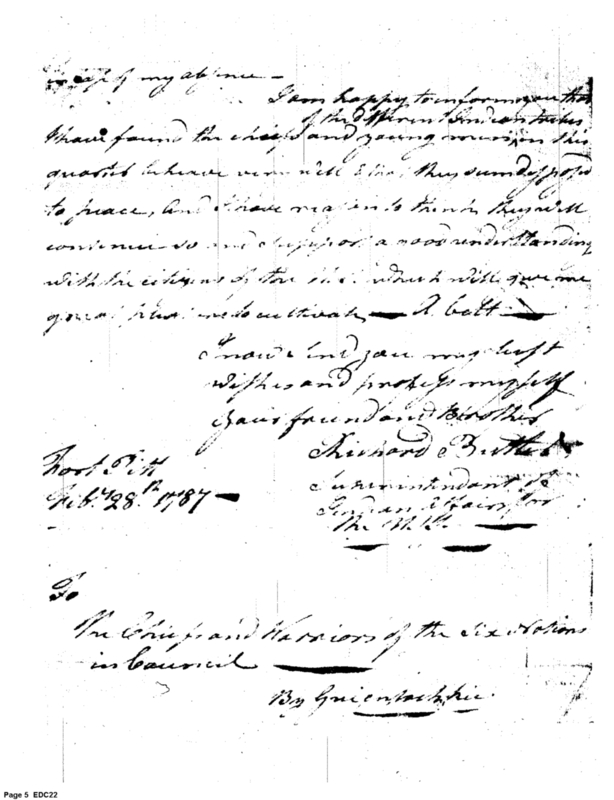 in case of my absence —
I am happy to inform you that
of the different Indian tribes
I have found the chiefs and young men in this
quarter behave very well & that they seem disposed
to peace, and I have reason to think they will
continue so and support a good understanding
with the citizens of the which will give me
great pleasure to cultivate — A belt —
I now send you my best
wishes and profess myself
your friend and Brother
Richard Butler
Superintendant of
Indian Affairs for
the N. D.
Fort Pitt
Feby. 28th. 1787 —
To
The Chiefs and Warriors of the Six Nations
in Council —
By
Page 5 EDC22